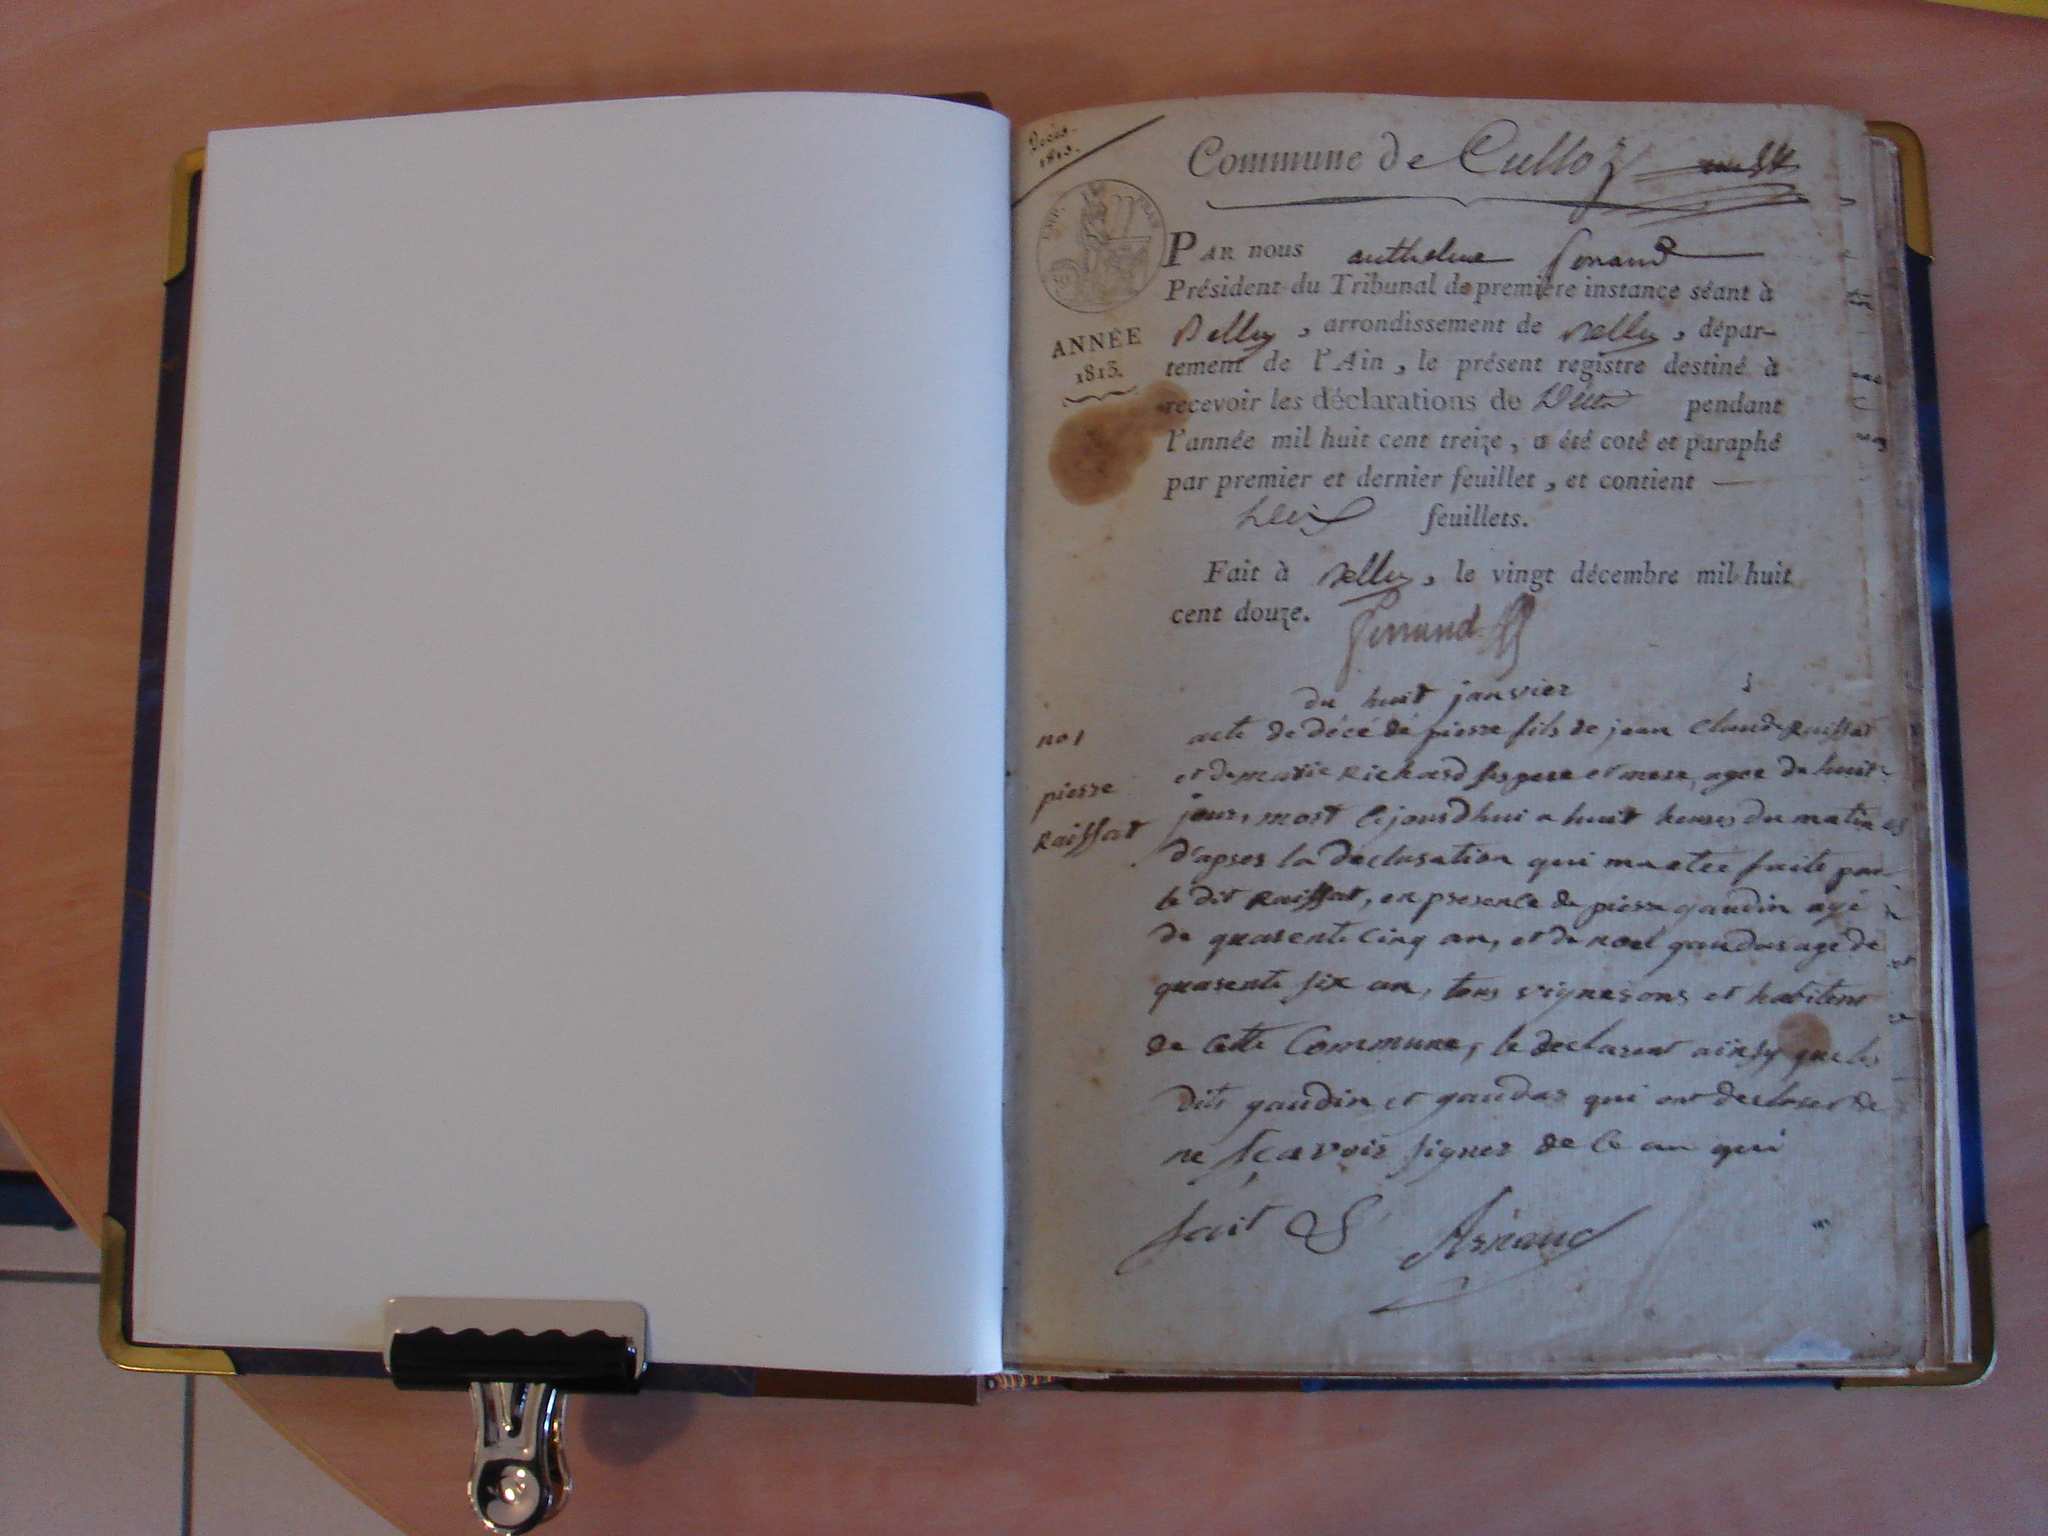 Décès.
1813.
Commune de Culloz
EMP. FRAN.
ANNÉE
1813.
PAR nous anthelme
Président du Tribunal de première instance séant à
Belley, arrondissement de Belley, dépar-
tement de l'Ain, le présent registre destiné à
recevoir les déclarations de Décès pendant
l'année mil huit cent treize, a été coté et paraphé
par premier et dernier feuillet, et contient
feuillets.
Fait à Belley, le vingt décembre mil huit
cent douze.
du huit janvier
no 1
pierre
Raiffat
acte de décé de pierre fils de jean Claude Raiffat
et de marie Richard ses pere et mere, agee de huit
jour, mort cejourdhui a huit heures du matin
d'apres la declaration qui ma etée faite par
le dit Raiffat, en presence de pierre gaudin agé
de quarente cinq an, et de noel gaudas age de
quarente six an, tous vignerons et habitent
de cette Commune, le declarent ainsy que les
dits gaudin et gaudas qui ont declaser de
ne scavoir signer de ce an qui
fait Arnaud